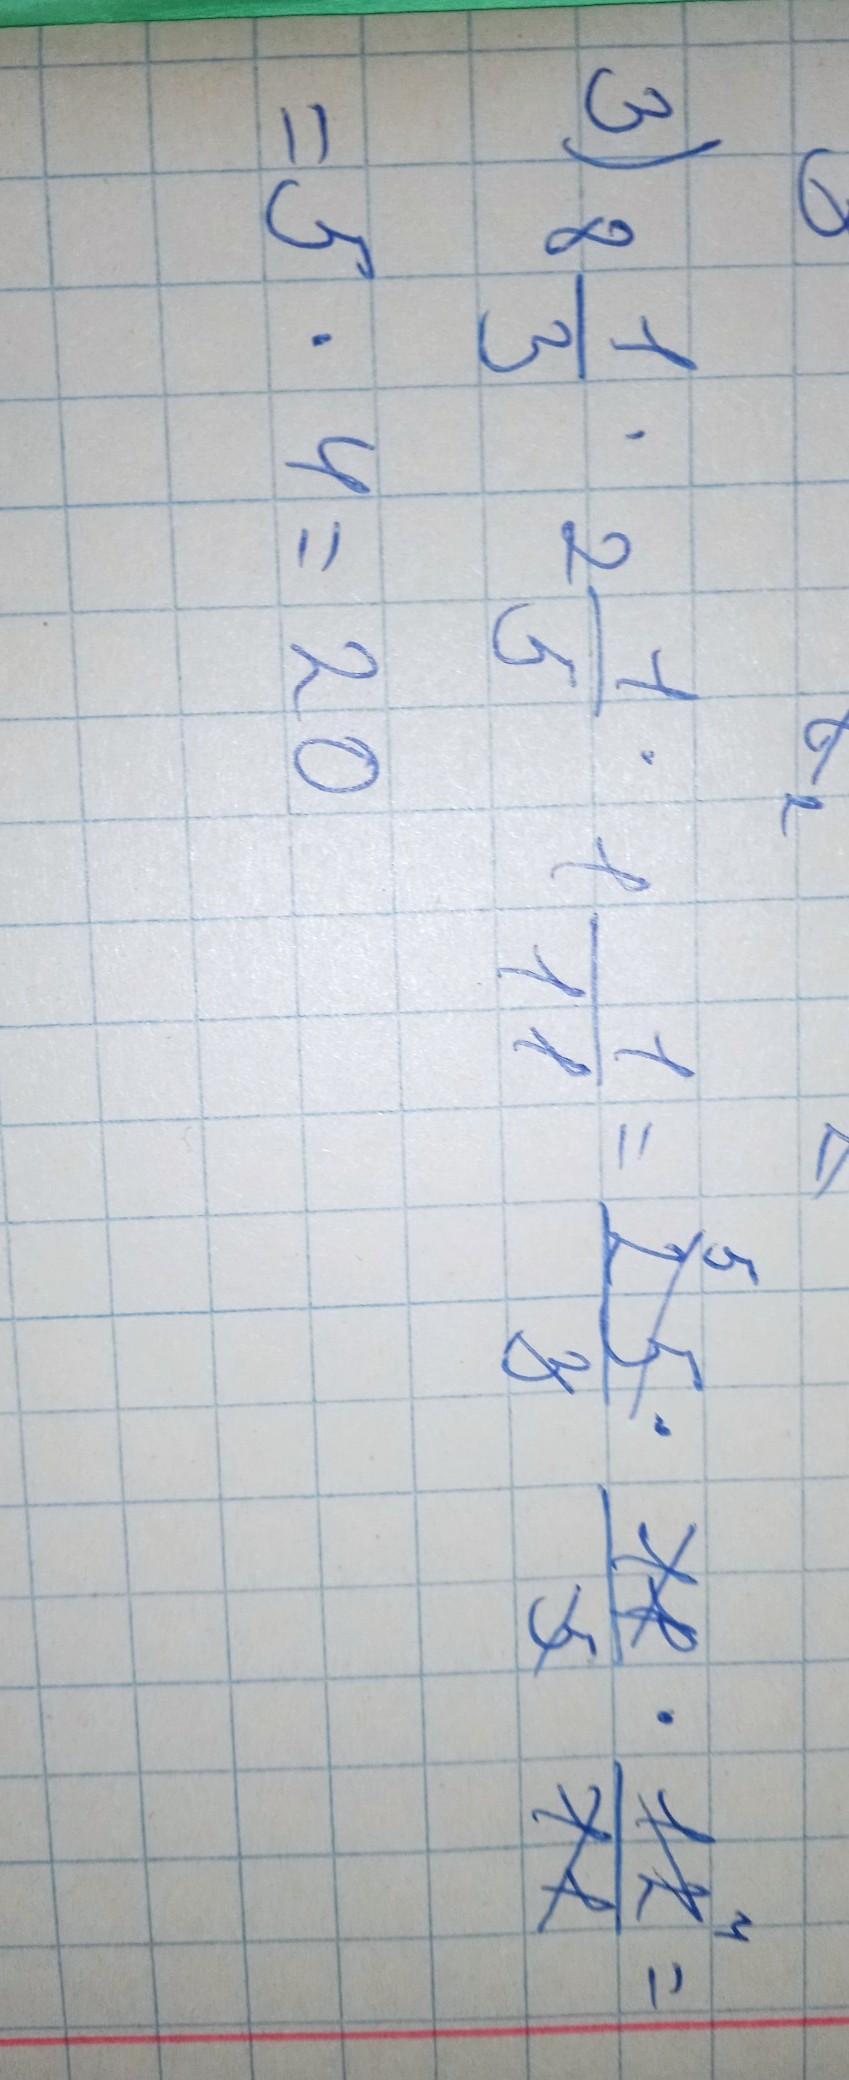 3) 8 1/3 · 2 1/5 · 1 1/11 = 25/3 · 11/5 · 12/11 =
= 5 · 4 = 20